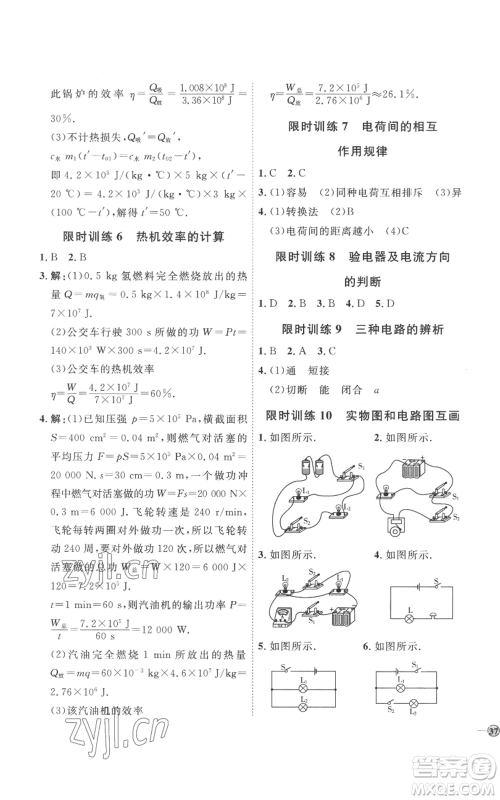 此锅炉的效率 η=Q吸/Q放=1.008×10⁸ J/3.36×10⁸ J=
30%.
(3)不计热损失,
c水 m₁(t′−t₀₁)=c水 m₂(t₀₂−t′),
即 4.2×10³ J/(kg·℃)×150 kg×(t′−
10 ℃)=4.2×10³ J/(kg·℃)×100 kg×
(100 ℃−t′),解得 t′=46 ℃.
限时训练 6 热机效率的计算
1. B 2. B
3. 解:(1)0.5 kg 氢燃料完全燃烧放出的热
量 Q=mq氢=0.5 kg×1.4×10⁸ J/kg=
7×10⁷ J.
(2)公交车行驶 300 s 所做的功 W=Pt=
1.4×10⁵ W×300 s=4.2×10⁷ J.
(3)公交车的热机效率
η=W/Q=4.2×10⁷ J/7×10⁷ J=60%.
4. 解:(1)已知压强 p=5×10⁵ Pa,横截面积
S=400 cm²=0.04 m²,则燃气对活塞的平
均压力 F=pS=5×10⁵ Pa×0.04 m²=
20 000 N,s=30 cm=0.3 m,则做功冲
程中燃气对活塞做的功 W=Fs=20 000 N×
0.3 m=6 000 J.飞轮转速是 240 r/min,
飞轮每转两圈对外做功一次,每分钟飞轮转动
240 周,要对外做功 120 次,所以燃气对活
塞做的总功 W总=120W=7.2×10⁵ J,
t=1 min=60 s,则该汽油机的输出功率 P=
W总/t=7.2×10⁵ J/60 s=12 000 W.
(2)汽油完全燃烧 1 min 所放出的热量
Q放=mq=60×10⁻³ kg×4.6×10⁷ J/kg=
2.76×10⁶ J.
(3)该汽油机的效率
η=W总/Q放=7.2×10⁵ J/2.76×10⁶ J≈26.1%.
限时训练 7 电荷间的相互
作用规律
1. C 2. C
3. (1)容易 (2)同种电荷互相排斥 (3)异
4. (1)转换法
(2)电荷间的距离越小
限时训练 8 验电器及电流方向
的判断
1. D 2. D 3. B 4. D 5. D
限时训练 9 三种电路的辨析
1. B 2. A 3. C
4. (1)通 短接
(2)切断 能 闭合 a
限时训练 10 实物图和电路图互画
1. 如图所示. 2. 如图所示.
S₁
L₁
L₂
S₂
3. 如图所示. 4. 如图所示.
5. 如图所示. 6. 如图所示.
37
zyjl.cn
zyjl.cn